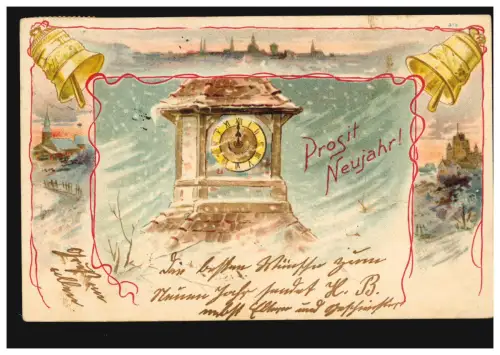 Prosit
Neujahr!
Die besten Wünsche zum
Neuen Jahr sendet H. B.
nebst Eltern und Geschwister